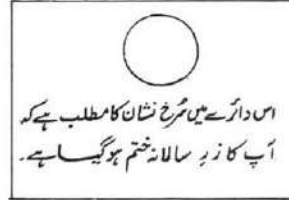 اس دائرے میں سُرخ نشان کا مطلب ہے کہ
آپ کا زرِ سالانہ ختم ہوگیا ہے۔